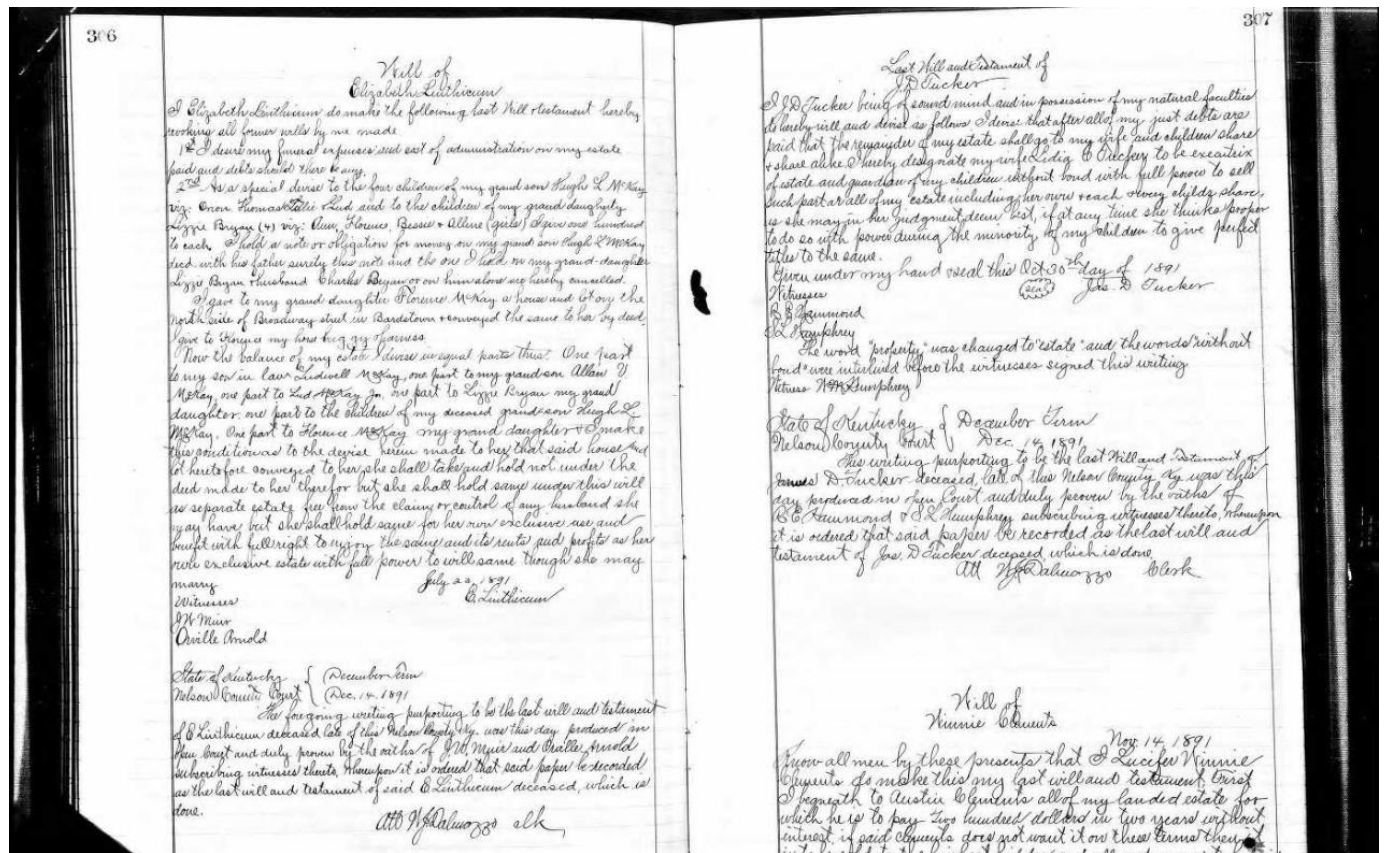 306
Will of
Elizabeth Linthicum
I Elizabeth Linthicum do make the following last Will & testament hereby
revoking all former wills by me made
1st I desire my funeral expenses and cost of administration on my estate
paid and debts should there be any.
2nd As a special devise to the four children of my grand son Hugh L McKay
viz: Thomas & Lud and to the children of my grand daughter
Lizzie Bryan (4) viz: Ann, Florence, Bessie & Allene (girls) I give one hundred
to each. I hold a note or obligation for money on my grand son Hugh L McKay
decd. with his father surety this note and the one I hold on my grand-daughter
Lizzie Bryan & husband Charles Bryan or on him alone are hereby cancelled.
I gave to my grand daughter Florence McKay a house and lot on the
north side of Broadway street in Bardstown & conveyed the same to her by deed,
give to Florence my horse buggy & harness
Now the balance of my estate I devise in equal parts thus. One part
to my son in law Ludwell McKay, one part to my grand son Allan
McKay, one part to Lud McKay Jr, one part to Lizzie Bryan my grand
daughter. one part to the children of my deceased grand son Hugh L.
McKay. One part to Florence McKay my grand daughter & I make
this condition as to the devise herein made to her, that said house and
lot heretofore conveyed to her, she shall take and hold not under the
deed made to her therefor but she shall hold same under this will
as separate estate free from the claim or control of any husband she
may have, but she shall hold same for her own exclusive use and
benefit with full right to enjoy the same and its rents and profits as her
own exclusive estate with full power to will same though she may
marry July 22, 1891
Witnesses E. Linthicum
J W Muir
Orville Arnold
State of Kentucky { December Term
Nelson County Court { Dec. 14, 1891
The foregoing writing purporting to be the last will and testament
of E Linthicum deceased late of this Nelson County Ky. was this day produced in
open Court and duly proven by the oaths of J.W. Muir and Orville Arnold
subscribing witnesses thereto, whereupon it is ordered that said paper be recorded
as the last will and testament of said E Linthicum deceased, which is
done.
Att W J Dalmazzo clk
307
Last Will and Testament of
J D Tucker
I J D Tucker being of sound mind and in possession of my natural faculties
do hereby will and devise as follows I devise that after all of my just debts are
paid that the remainder of my estate shall go to my wife and children share
& share alike I hereby designate my wife Lidia E Tucker to be excutrix
of estate and guardian of my children without bond with full power to sell
such part or all of my estate including her own & each & every childs share,
as she may in her judgment deem best, if at any time she thinks proper
to do so with power during the minority of my children to give perfect
titles to the same.
Given under my hand & seal this Oct 30th day of 1891
Witnesses seal Jas. D Tucker
B E Hammond
S L Humphrey
The word "property" was changed to "estate" and the words "without
bond" were interlined before the witnesses signed this writing
Witness Humphrey
State of Kentucky { December Term
Nelson County Court } Dec. 14, 1891
This writing purporting to be the last Will and Testament of
James D. Tucker deceased, late of this Nelson County Ky was this
day produced in open Court and duly proven by the oaths of
B. E Hammond & S L Humphrey subscribing witnesses thereto, Whereupon
it is ordered that said paper be recorded as the last will and
testament of Jas. D Tucker deceased which is done
Att W J Dalmazzo Clerk
Will of
Winnie Clements
Nov 14, 1891
Know all men by these presents that I Lucifer Winnie
Clements do make this my last will and testament, First
I bequeath to Austin Clements all of my landed estate for
which he is to pay two hundred dollars in two years without
interest, if said Clements does not want it on these terms then it